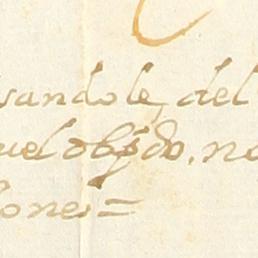 sandole, del
uel obpdo, no
ones =